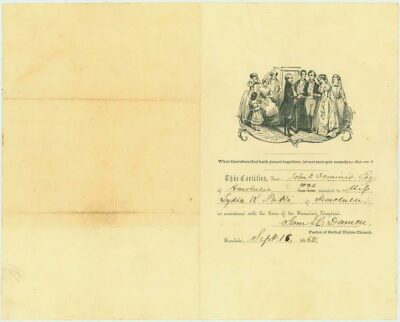 What therefore God hath joined together, let not man put asunder.
This Certifies, That John O Dominis Esq
of Honolulu was married to Miss
Lydia K Paki of Honolulu
in accordance with the Laws of the Hawaiian Kingdom.
Sam C. Damon
Pastor of Bethel Union Church.
Honolulu, Sept 16, 1862.